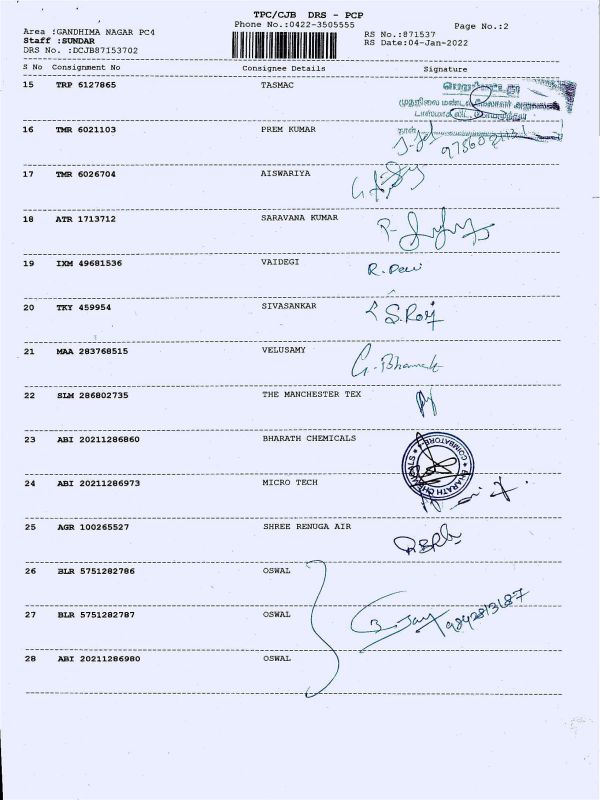 TPC/CJB DRS - PCP
Phone No.:0422-3505555
Page No.:2
Area :GANDHIMA NAGAR PC4
Staff :SUNDAR
DRS No. :DCJB87153702
RS No.:871537
RS Date:04-Jan-2022
S No Consignment No Consignee Details Signature
15 TRP 6127865 TASMAC
முதுநிலை மண்டல மேலாளர் அலுவலகம்
16 TMR 6021103 PREM KUMAR
17 TMR 6026704 AISWARIYA
18 ATR 1713712 SARAVANA KUMAR
19 IXM 49681536 VAIDEGI R. Devi
20 TKY 459954 SIVASANKAR S.Roij
21 MAA 283768515 VELUSAMY G. Bhamath
22 SLM 286802735 THE MANCHESTER TEX
23 ABI 20211286860 BHARATH CHEMICALS
COIMBATORE
BHARATH CHEMICALS
24 ABI 20211286973 MICRO TECH
25 AGR 100265527 SHREE RENUGA AIR
26 BLR 5751282786 OSWAL
27 BLR 5751282787 OSWAL 9842813687
28 ABI 20211286980 OSWAL